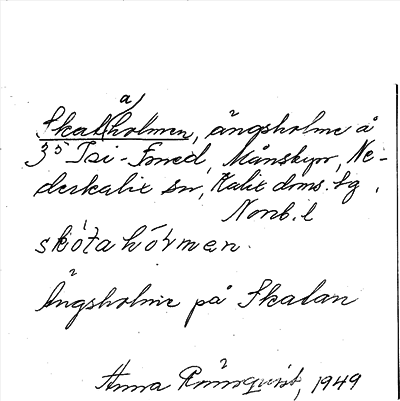 a
Skat(holmen, ängsholme å
35 Tri-Fored, Månskyrr, Ne-
derkalix sn, Kalix doms. tg.
Norrb. l
skóta hòvmen.
Ängsholme på Skatan
Anna Rönnquist, 1949